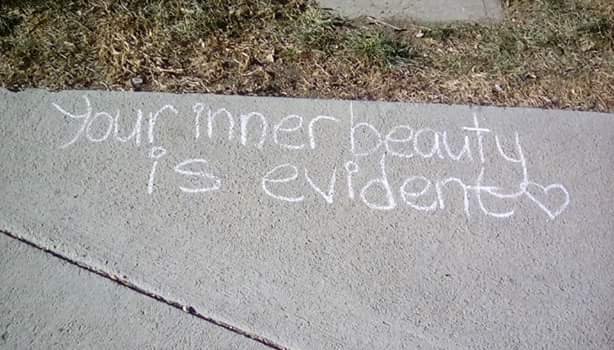 your inner beauty
is evident♡